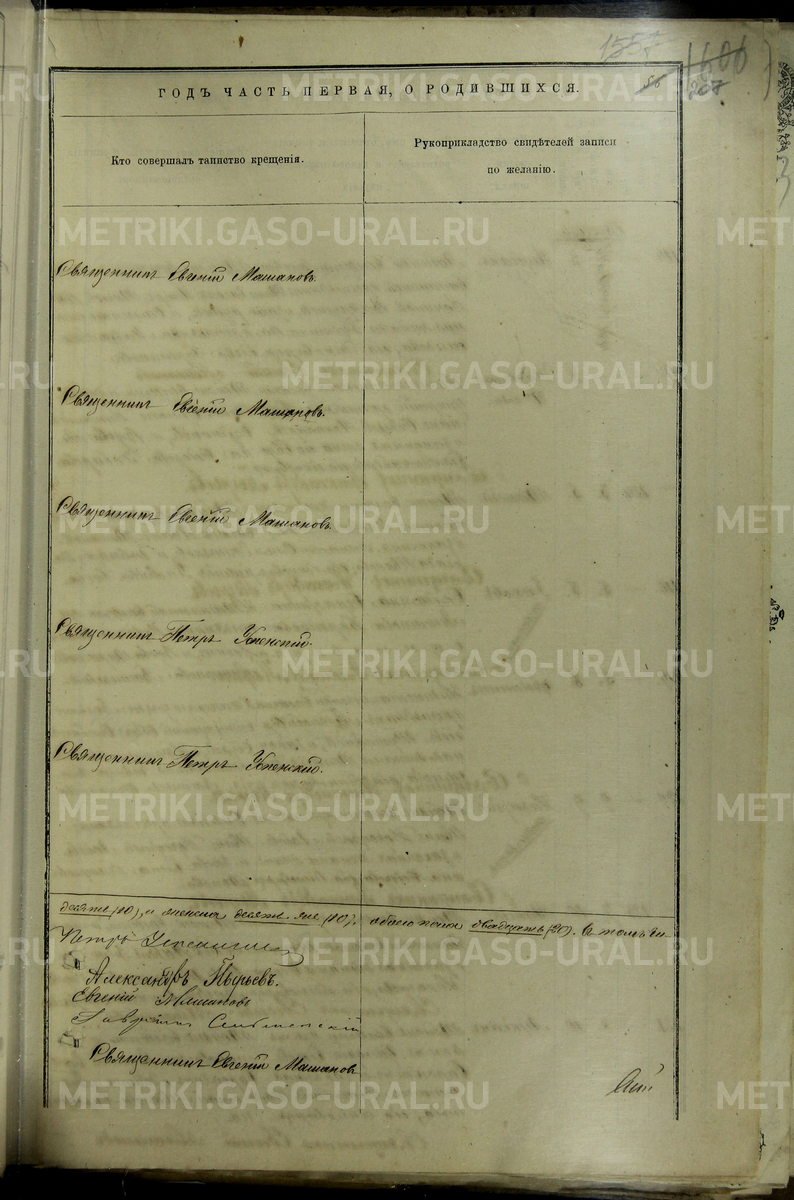 1557
1606
86
207
ГОДЪ ЧАСТЬ ПЕРВАЯ, О РОДИВШИХСЯ.
Кто совершалъ таинство крещенія.
Рукоприкладство свидѣтелей записи
по желанію.
METRIKI.GASO-URAL.RU
Священникъ Евгеній Машановъ.
Священникъ Евгеній Машановъ.
Священникъ Евгеній Машановъ.
Священникъ Петръ Успенскій.
Священникъ Петръ Успенскій.
десять (10), и женска десять (10), обоего пола двадцать (20). Въ томъ
Петръ Успенскій
Александръ Пырьевъ.
Евгеній Машановъ
Священникъ Евгеній Машановъ